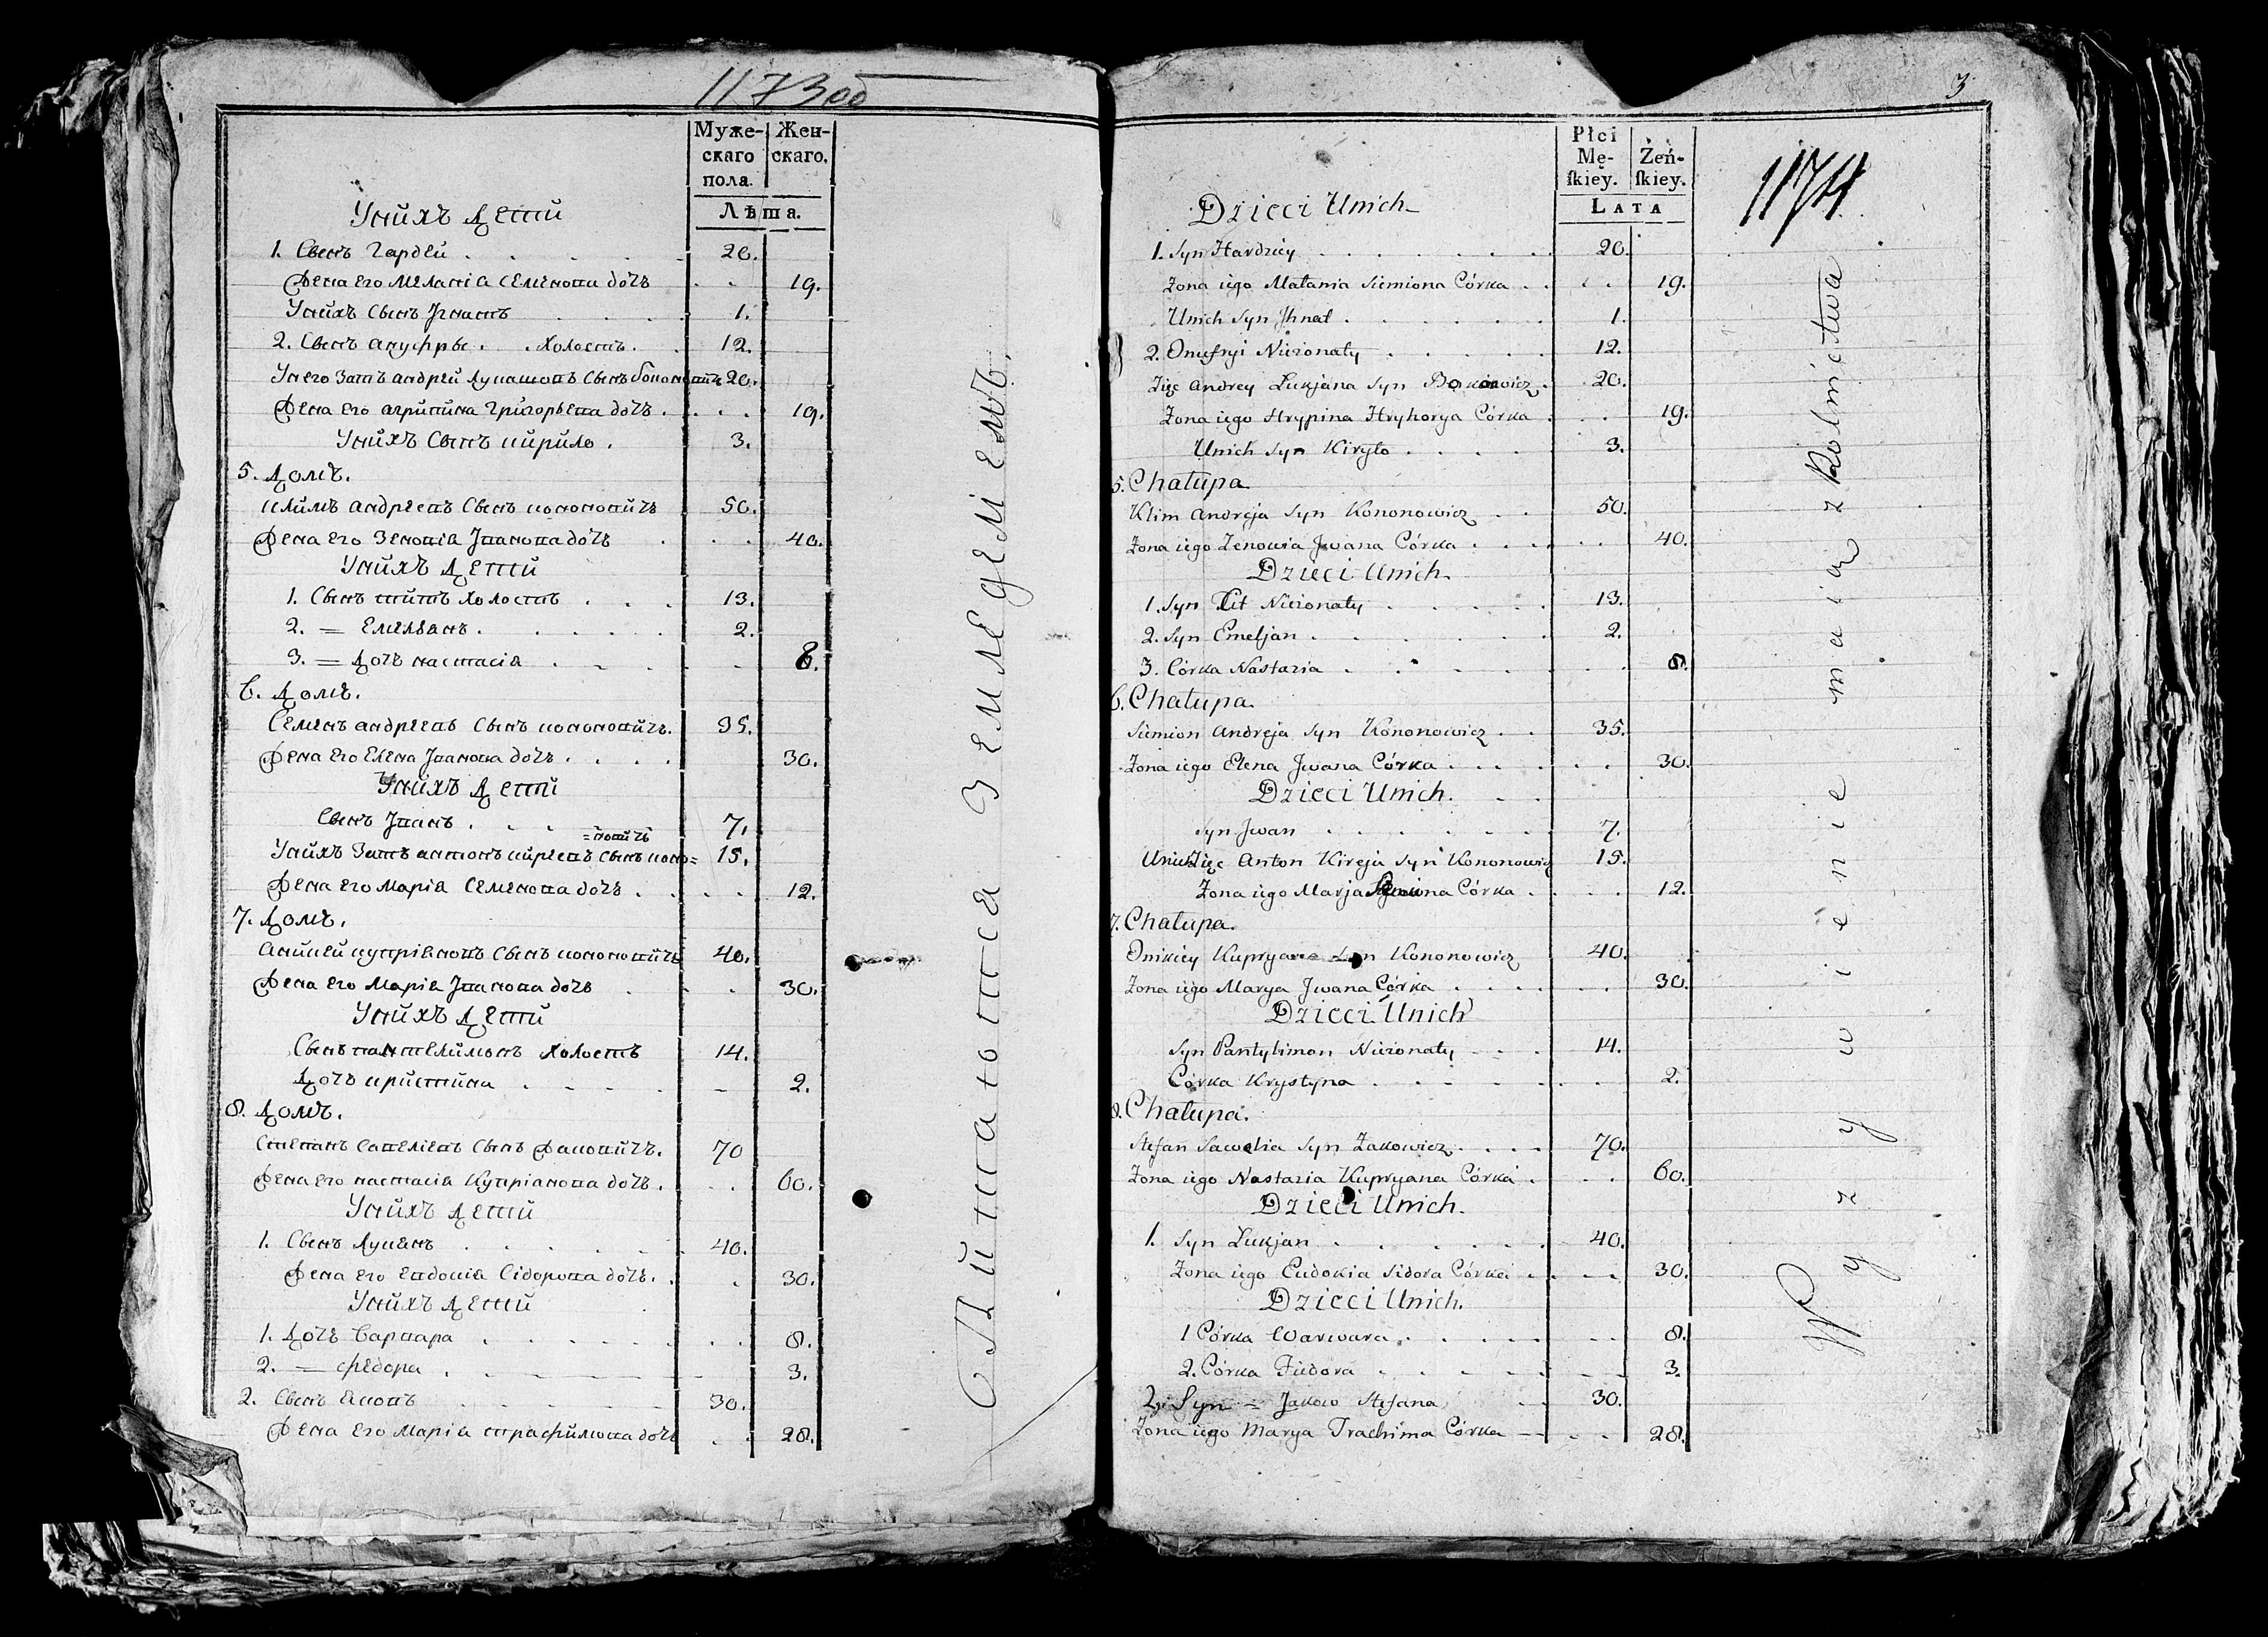 1173об
Муже-
скаго
пола.
Жен-
скаго.
Лѣта.
Унйхъ Дѣтй
1. Сынъ Гардѣй . . . . . 20.
Жена Его Меланія Семенова дочь . . 19.
Унйхъ Сынъ Ігнатъ . . . . 1.
2. Сынъ Ануфрѣ . . Холостъ . . 12.
Унего Зять Андрѣй Лукашовъ Сынъ 20.
Жена Его Агрипина Григорьева дочь . . . . 19.
Унйхъ Сынъ Кирйло . 3.
5. Домъ.
Клймъ Андрѣевъ Сынъ Кононовйчъ 50.
Жена Его Зеновія Іванова дочь . . . 40.
Унйхъ Дѣтй
1. Сынъ Тйтъ Холостъ . . . 13.
2. = Емельянъ . . . . . 2.
3. = Дочь Настасія . . . . 8.
6. Домъ.
Семенъ Андрѣевъ Сынъ Кононовйчъ. 35.
Жена Его Елена Іванова дочь . . . . 30.
Унйхъ Дѣтй
Сынъ Іванъ . . . 7.
=новйчъ
Унйхъ Зять Антонъ Кйрѣевъ Сынъ Коно= 15.
Жена Его Марія Семенова дочь . . . . 12.
7. Домъ.
Анйкѣй Купріяновъ Сынъ Кононовйчъ 40.
Жена Его Марія Іванова дочь . . . 30.
Унйхъ Дѣтй
Сынъ Пантелймонъ Холостъ 14.
Дочь Крйстйна . . . . . 2.
8. Домъ.
Степанъ Савелѣевъ Сынъ Жаковйчъ. 70
Жена Его Настасія Купріанова дочь . . . 60.
Унйхъ Дѣтй
1. Сынъ Лукянъ . . . . . 40.
Жена Его Евдокія Сідорова дочь. . . 30.
Унйхъ Дѣтй
1. Дочь Варвара . . . . . 8.
2. = Федора . . . . . 3.
2. Сынъ Яковъ . . . . 30.
Жена Его Марія Трафймова дочь . . 28.
Земледѣліемъ.
3
1174
Płci
Mę-
ſkiey.
Żeń-
ſkiey.
LATA
Dzieci Unich
1. Syn Hardziey . . . . . . 20.
Żona iego Matania Siemiona Córka . . . . 19.
Unich Syn Jhnat . . . . . 1.
2. Onufryi Nieżonaty . . . . 12.
Zięć Andrey Łukjana Syn . 20.
Żona iego Hrypina Hryhorya Córka . . . 19.
Unich Syn Kiryło . . . . 3.
5. Chałupa
Klim Andreja Syn Kononowicz . . 50.
Żona iego Zenowia Jwana Córka . . . . . . 40.
Dzieci Unich
1. Syn Tit Nieżonaty . . . . . 13.
2. Syn Emeljan . . . . . 2.
3. Córka Nastazia . . . . . 8.
6. Chałupa.
Siemion Andreja Syn Kononowicz . . 35.
Żona iego Elena Jwana Córka . . . . . . 30.
Dzieci Unich. . .
Syn Jwan . . . . . . 7.
Unich Zięć Anton Kireja Syn Kononowicz 15.
Żona iego Marja Siemiona Córka . . . . 12.
7. Chałupa.
Onikiey Kupryana Syn Kononowicz 40.
Żona iego Marya Jwana Córka . . . . . . 30.
Dzieci Unich
Syn Pantylimon Nieżonaty . . . 14.
Córka Krystyna . . . . . . . 2.
8. Chałupa.
Stefan Sawelia Syn Żakowicz . . . . 70.
Żona iego Nastazia Kupryana Córka . . . 60.
Dzieci Unich.
1. Syn Łukjan . . . . . . 40.
Żona iego Eudokia Sidora Córka . . . . 30.
Dzieci Unich.
1 Córka Warwara . . . . . . 8.
2. Córka Fiedora . . . . . . 3.
2. Syn = Jakow Stefana . . 30.
Żona iego Marya Trachima Córka — . . 28.
Wyżywienie maią z Rolnictwa